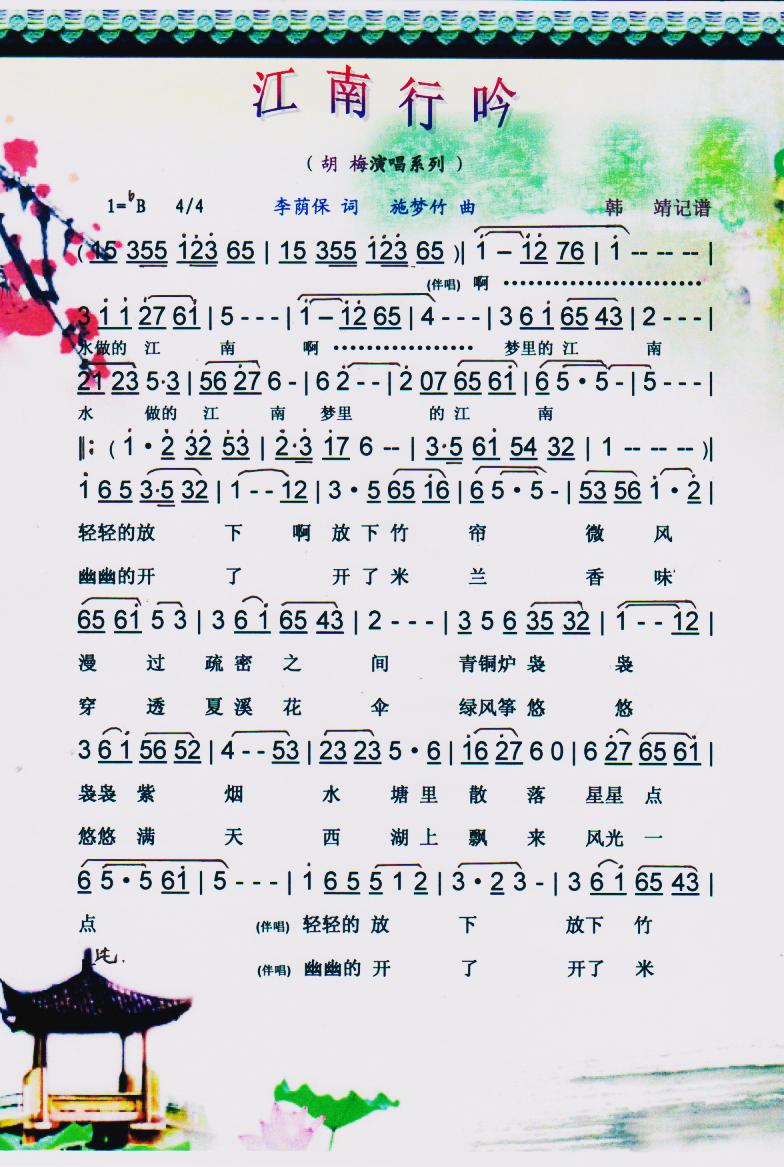 江南行吟
（胡 梅演唱系列）
1=♭B 4/4 李荫保 词 施梦竹 曲 韩 靖记谱
( 15 355 i̇23 65 | 15 355 i̇23 65 )| i̇ – i̇2 76 | i̇ -- -- -- |
(伴唱) 啊
3 i̇ i̇ 27 6i̇ | 5 - - - | i̇ – i̇2 65 | 4 - - - | 3 6 i̇ 65 43 | 2 - - - |
水做的 江 南 啊 梦里的 江 南
21 23 5·3 | 56 27 6 - | 6 2 - - | 2 07 65 6i̇ | 6 5 · 5 - | 5 - - - |
水 做的 江 南 梦里 的 江 南
‖: ( i̇ · 2 32 53 | 2·3 i̇7 6 -- | 3·5 6i̇ 54 32 | 1 -- -- -- )|
i̇ 6 5 3·5 32 | 1 - - 12 | 3 · 5 65 i̇6 | 6 5 · 5 - | 53 56 i̇ · 2 |
轻轻的放 下 啊 放 下 竹 帘 微 风
幽幽的开 了 开 了 米 兰 香 味
65 6i̇ 5 3 | 3 6 i̇ 65 43 | 2 - - - | 3 5 6 35 32 | 1 - - 12 |
漫 过 疏 密 之 间 青铜炉 袅 袅
穿 透 夏 溪 花 伞 绿风筝 悠 悠
3 6 i̇ 56 52 | 4 - - 53 | 23 23 5 · 6 | i̇6 27 6 0 | 6 27 65 6i̇ |
袅袅 紫 烟 水 塘 里 散 落 星星 点
悠悠 满 天 西 湖 上 飘 来 风光 一
6 5 · 5 6i̇ | 5 - - - | i̇ 6 5 5 1 2 | 3 · 2 3 - | 3 6 i̇ 65 43 |
点 (伴唱) 轻轻的 放 下 放下 竹
(伴唱) 幽幽的 开 了 开了 米